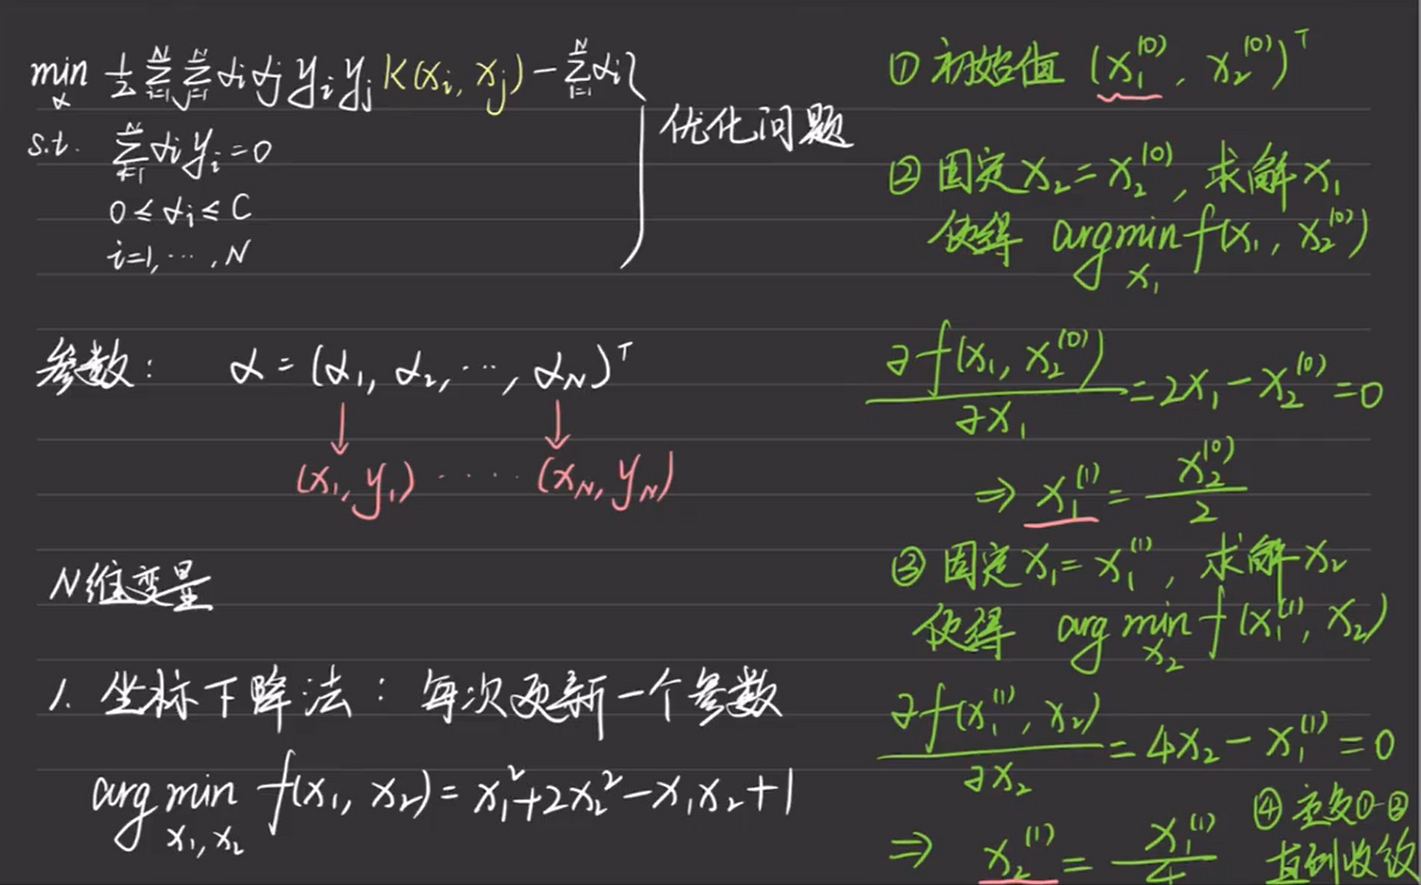 min 1/2 Σ_{i=1}^{N} Σ_{j=1}^{N} α_i α_j y_i y_j K(x_i, x_j) - Σ_{i=1}^{N} α_i
α
s.t. Σ_{i=1}^{N} α_i y_i = 0
0 ≤ α_i ≤ C
i=1, ⋯, N
优化问题
参数: α = (α_1, α_2, ⋯, α_N)^T
(x_1, y_1) ⋯⋯ (x_N, y_N)
N维变量
1. 坐标下降法: 每次更新一个参数
arg min f(x_1, x_2) = x_1^2 + 2x_2^2 - x_1x_2 + 1
x_1, x_2
① 初始值 (x_1^{(0)}, x_2^{(0)})^T
② 固定 x_2 = x_2^{(0)}, 求解 x_1
使得 argmin f(x_1, x_2^{(0)})
x_1
∂f(x_1, x_2^{(0)}) / ∂x_1 = 2x_1 - x_2^{(0)} = 0
⇒ x_1^{(1)} = x_2^{(0)} / 2
③ 固定 x_1 = x_1^{(1)}, 求解 x_2
使得 arg min f(x_1^{(1)}, x_2)
x_2
∂f(x_1^{(1)}, x_2) / ∂x_2 = 4x_2 - x_1^{(1)} = 0
⇒ x_2^{(1)} = x_1^{(1)} / 4
④ 重复①-③
直到收敛